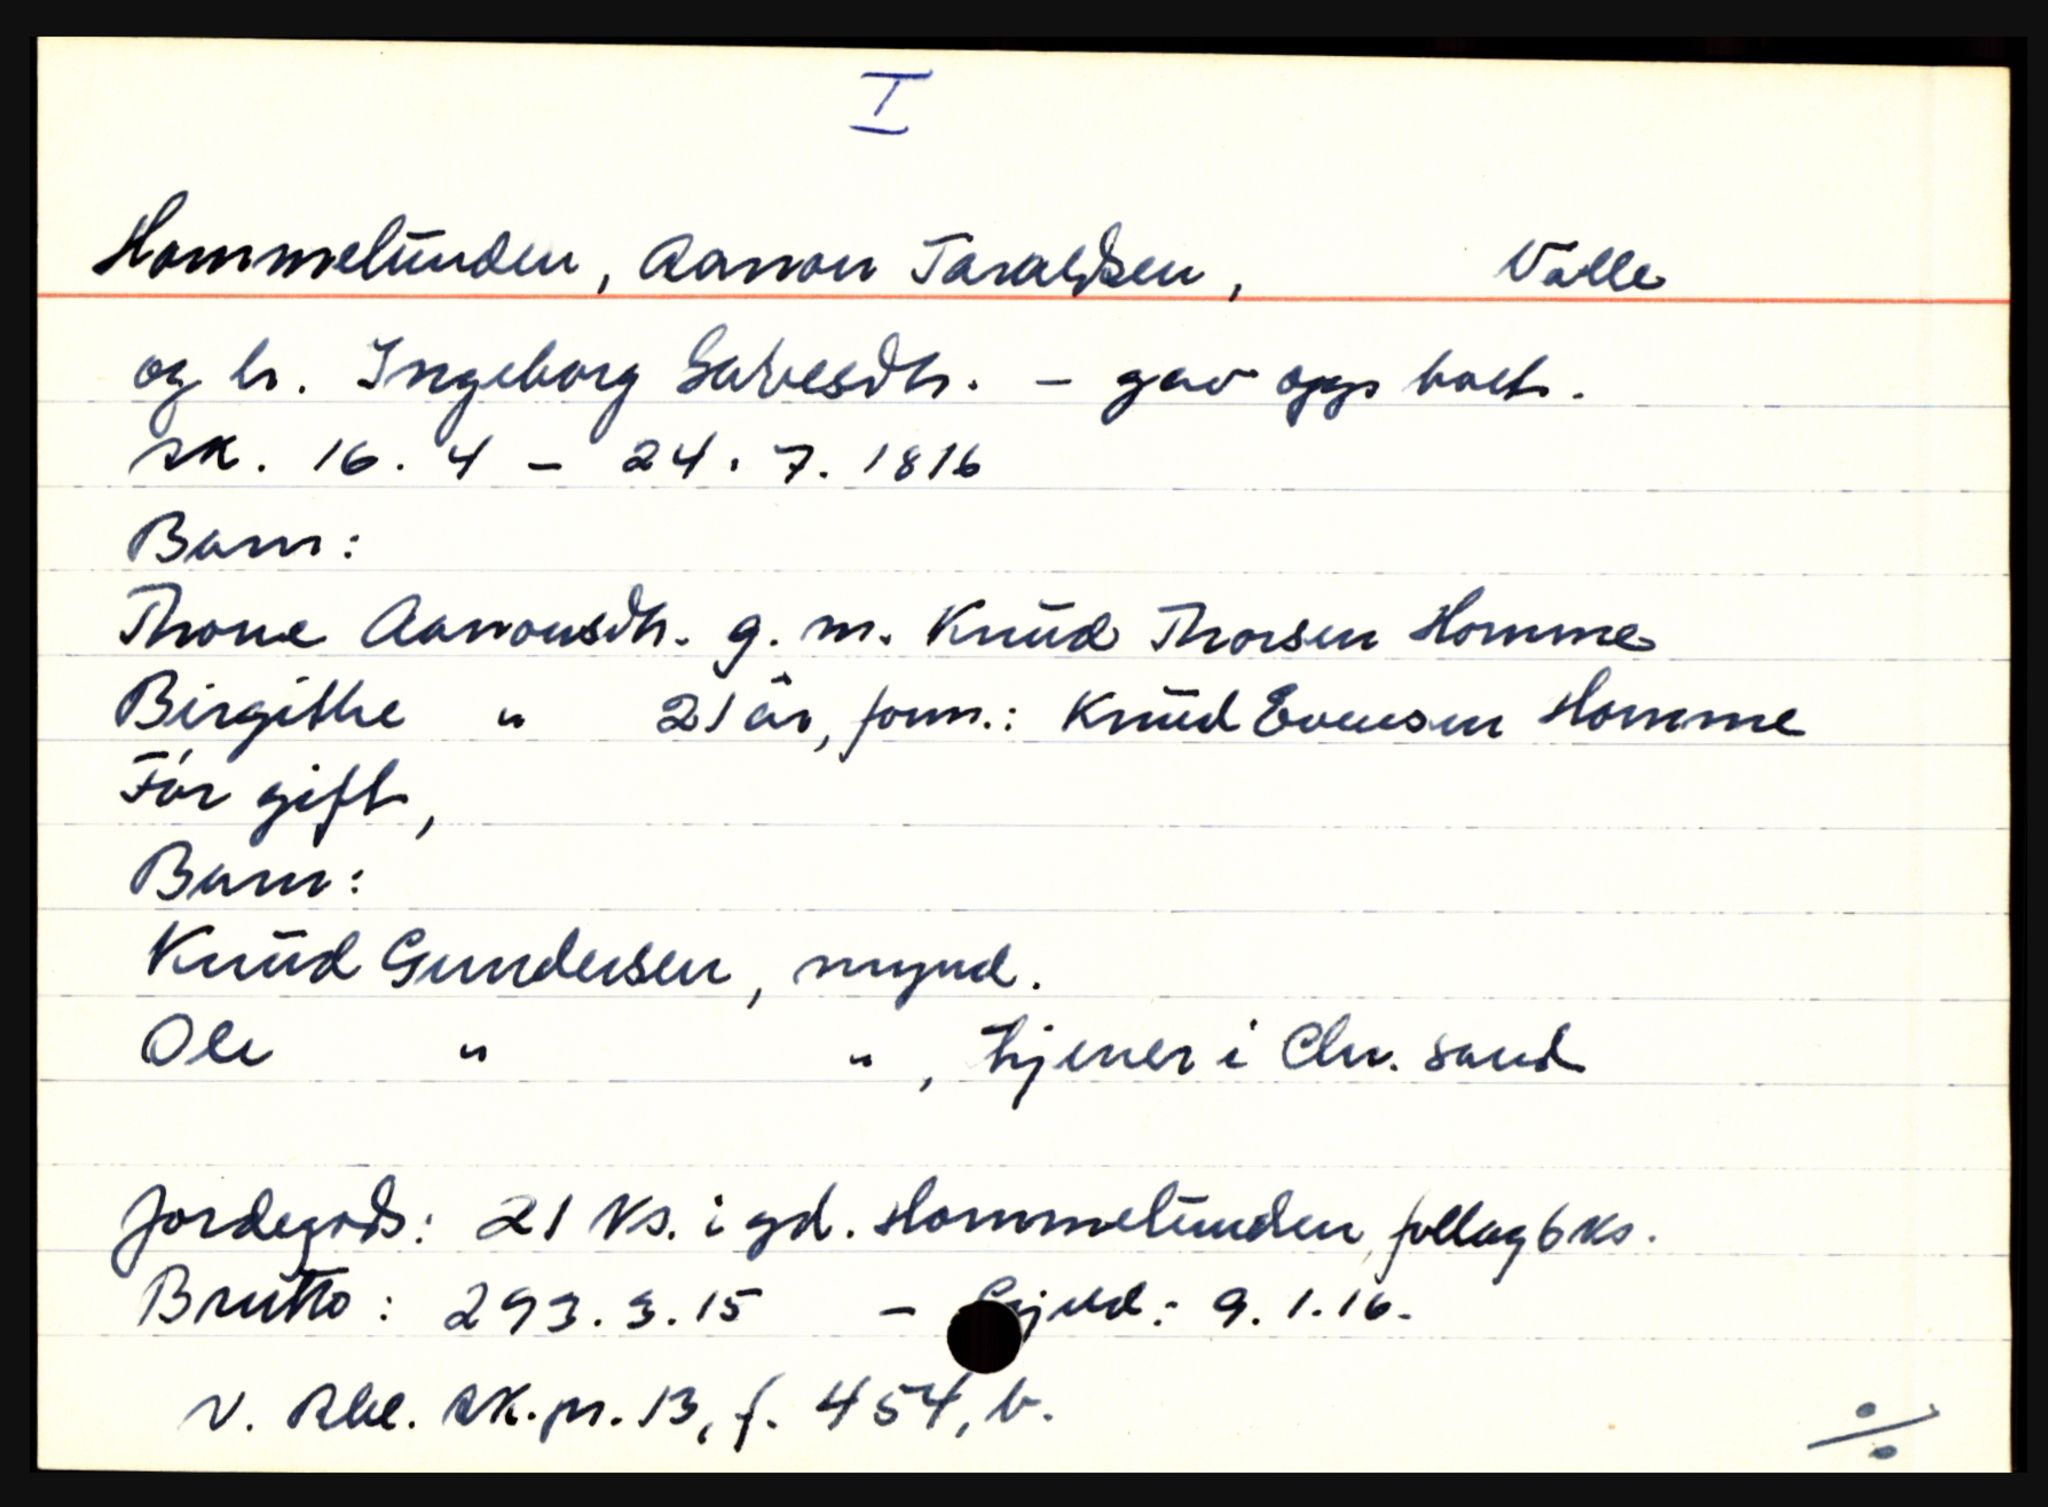 I
Hommelunden, Aanon Taraldsen, Valle
og h. Ingeborg Salvesdtr. - gav opp boet.
sk. 16. 4 - 24. 7. 1816
Barn:
Thone Aanonsdtr. g. m. Knud Thorsen Homme
Birgithe " 21 år, form.: Knud Evensen Homme
Før gift,
Barn:
Knud Gundersen, mynd.
Ole " ", tjener i Chr. sand
Jordegods: 21 ks. i gd. Hommelunden follag 6 ks.
Brutto: 293. 3. 15 - Gjeld: 9. 1. 16.
V. Rbl. sk. pr. 13, f. 454, b.
%